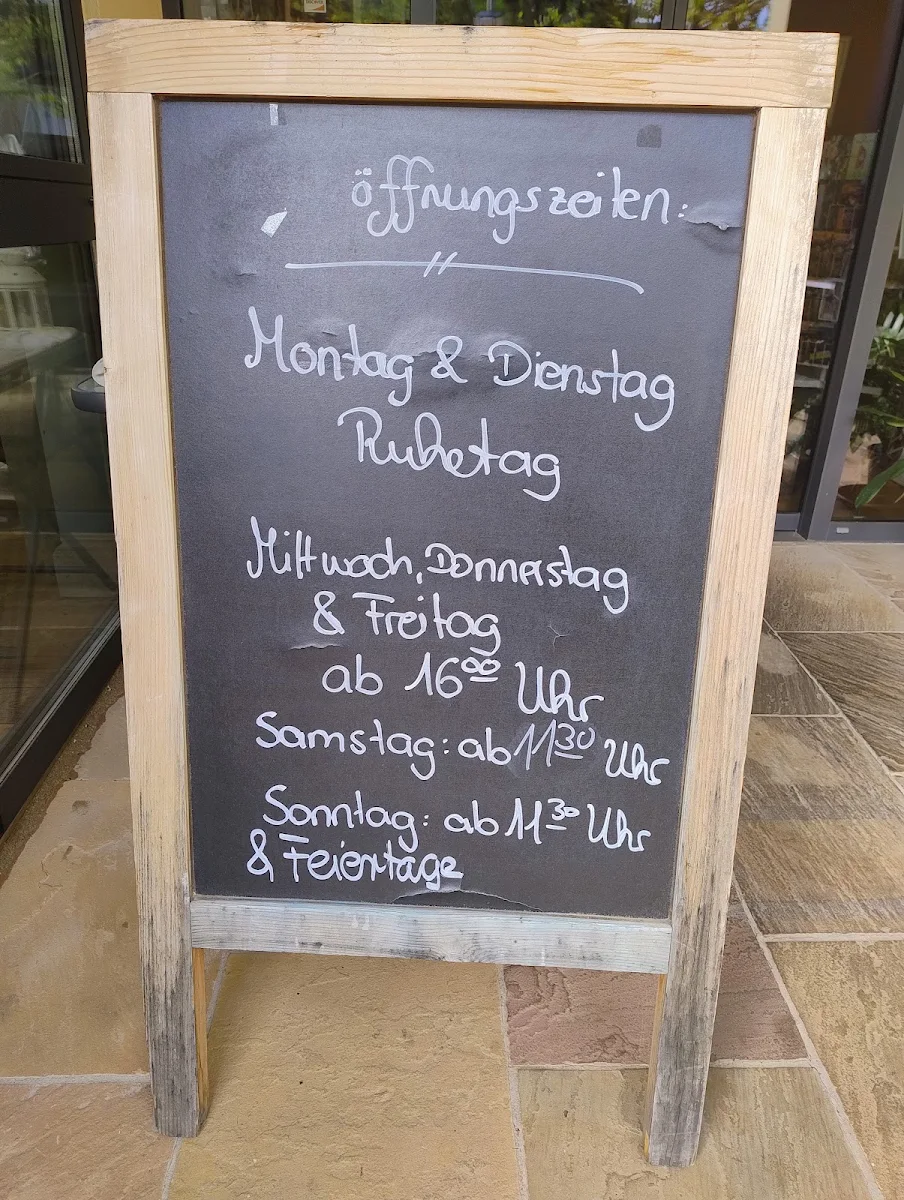 öffnungszeiten:
Montag & Dienstag
Ruhetag
Mittwoch, Donnerstag
& Freitag
ab 16⁰⁰ Uhr
Samstag: ab 11³⁰ Uhr
Sonntag: ab 11³⁰ Uhr
& Feiertage